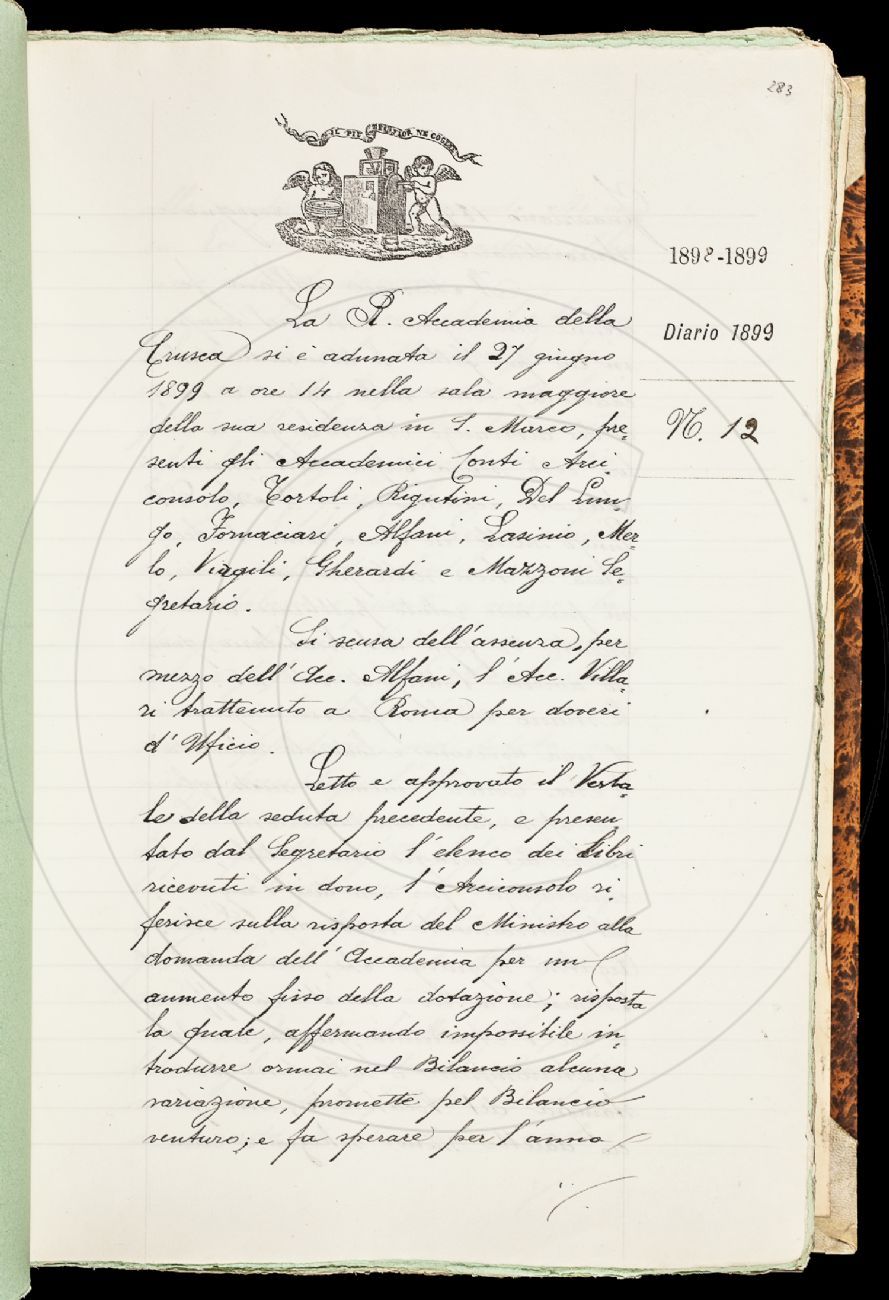 283
IL PIÙ BEL FIOR NE COGLIE
1898-1899
Diario 1899
N. 12
La R. Accademia della
Crusca si è adunata il 27 giugno
1899 a ore 14 nella sala maggiore
della sua residenza in S. Marco, pre=
senti gli Accademici Conti Arci
consolo, Tortoli, Rigutini, Del Lun=
go, Fornaciari, Alfani, Lasinio, Mer=
lo, Virgili, Gherardi e Mazzoni Se=
gretario.
Si scusa dell'assenza, per
mezzo dell'Acc. Alfani, l'Acc. Villa=
ri trattenuto a Roma per doveri
d'Uficio.
Letto e approvato il Verba=
le della seduta precedente, e presen
tato dal Segretario l'elenco dei Libri
ricevuti in dono, l'Arciconsolo ri=
ferisce sulla risposta del Ministro alla
domanda dell'Accademia per un
aumento fisso della dotazione; risposta
la quale, affermando impossibile in=
trodurre ormai nel Bilancio alcuna
variazione, promette pel Bilancio
venturo; e fa sperare per l'anno